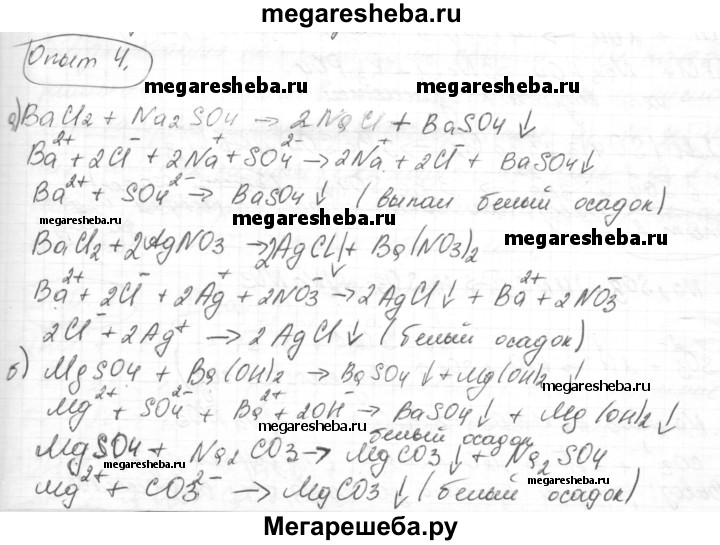 megaresheba.ru
Опыт 4.
megaresheba.ru megaresheba.ru
а) BaCl2 + Na2SO4 → 2NaCl + BaSO4↓
Ba²⁺ + 2Cl⁻ + 2Na⁺ + SO4²⁻ → 2Na⁺ + 2Cl⁻ + BaSO4↓
Ba²⁺ + SO4²⁻ → BaSO4↓ (выпал белый осадок)
megaresheba.ru megaresheba.ru
BaCl2 + 2AgNO3 → 2AgCl↓ + Ba(NO3)2
megaresheba.ru
Ba²⁺ + 2Cl⁻ + 2Ag⁺ + 2NO3⁻ → 2AgCl↓ + Ba²⁺ + 2NO3⁻
2Cl⁻ + 2Ag⁺ → 2AgCl↓ (белый осадок)
б) MgSO4 + Ba(OH)2 → BaSO4↓ + Mg(OH)2↓
megaresheba.ru
Mg²⁺ + SO4²⁻ + Ba²⁺ + 2OH⁻ → BaSO4↓ + Mg(OH)2↓
megaresheba.ru
белый осадок
MgSO4 + Na2CO3 → MgCO3↓ + Na2SO4
megaresheba.ru megaresheba.ru
Mg²⁺ + CO3²⁻ → MgCO3↓ (белый осадок)
Мегарешеба.ру